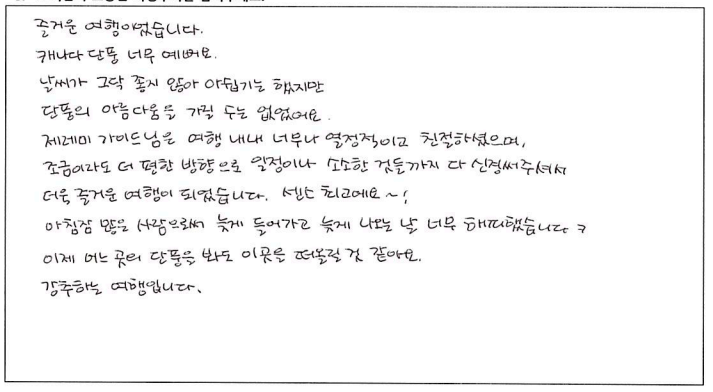 즐거운 여행이었습니다.
캐나다 단풍 너무 예뻐요.
날씨가 그닥 좋지 않아 아쉽기는 했지만
단풍의 아름다움을 가릴 수는 없었어요.
제레미 가이드님은 여행 내내 너무나 열정적이고 친절하셨으며,
조금이라도 더 편한 방향으로 일정이나 소소한 것들까지 다 신경써주셔서
더욱 즐거운 여행이 되었습니다. 센스 최고예요~!
아침잠 많은 사람으로써 늦게 들어가고 늦게 나오는 날 너무 해피했습니다 ㅋ
이제 어느 곳의 단풍을 봐도 이곳을 떠올릴 것 같아요.
강추하는 여행입니다.